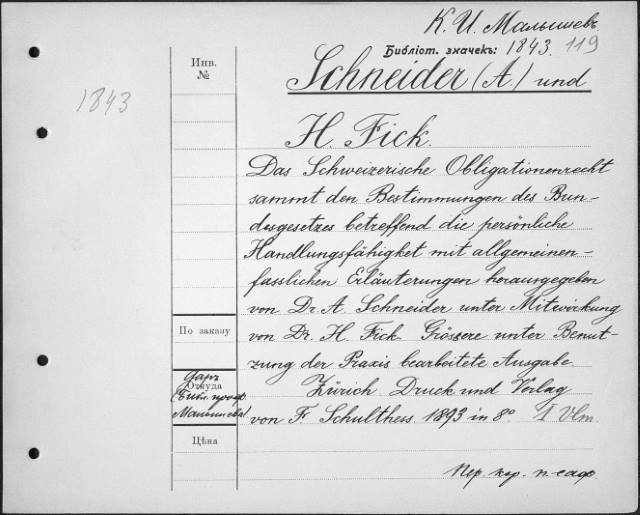 К. И. Малышевъ
Библіот. значекъ: 1843. 119
1843
Инв.
№
Schneider (A.) und
H. Fick.
Das Schweizerische Obligationenrecht
sammt den Bestimmungen des Bun-
desgesetzes betreffend die persönliche
Handlungsfähigket mit allgemeinen-
fasslichen Erläuterungen herausgegeben
von Dr. A. Schneider unter Mitwirkung
По заказу
von Dr. H. Fick. Grössere unter Benut-
zung der Praxis bearbeitete Ausgabe
Даръ
Откуда
(Библ. проф.
Малышева)
Zürich Druck und Verlag
von F. Schulthess. 1893 in 8º I Vlm.
Цѣна
Пер. кор. п-саф.